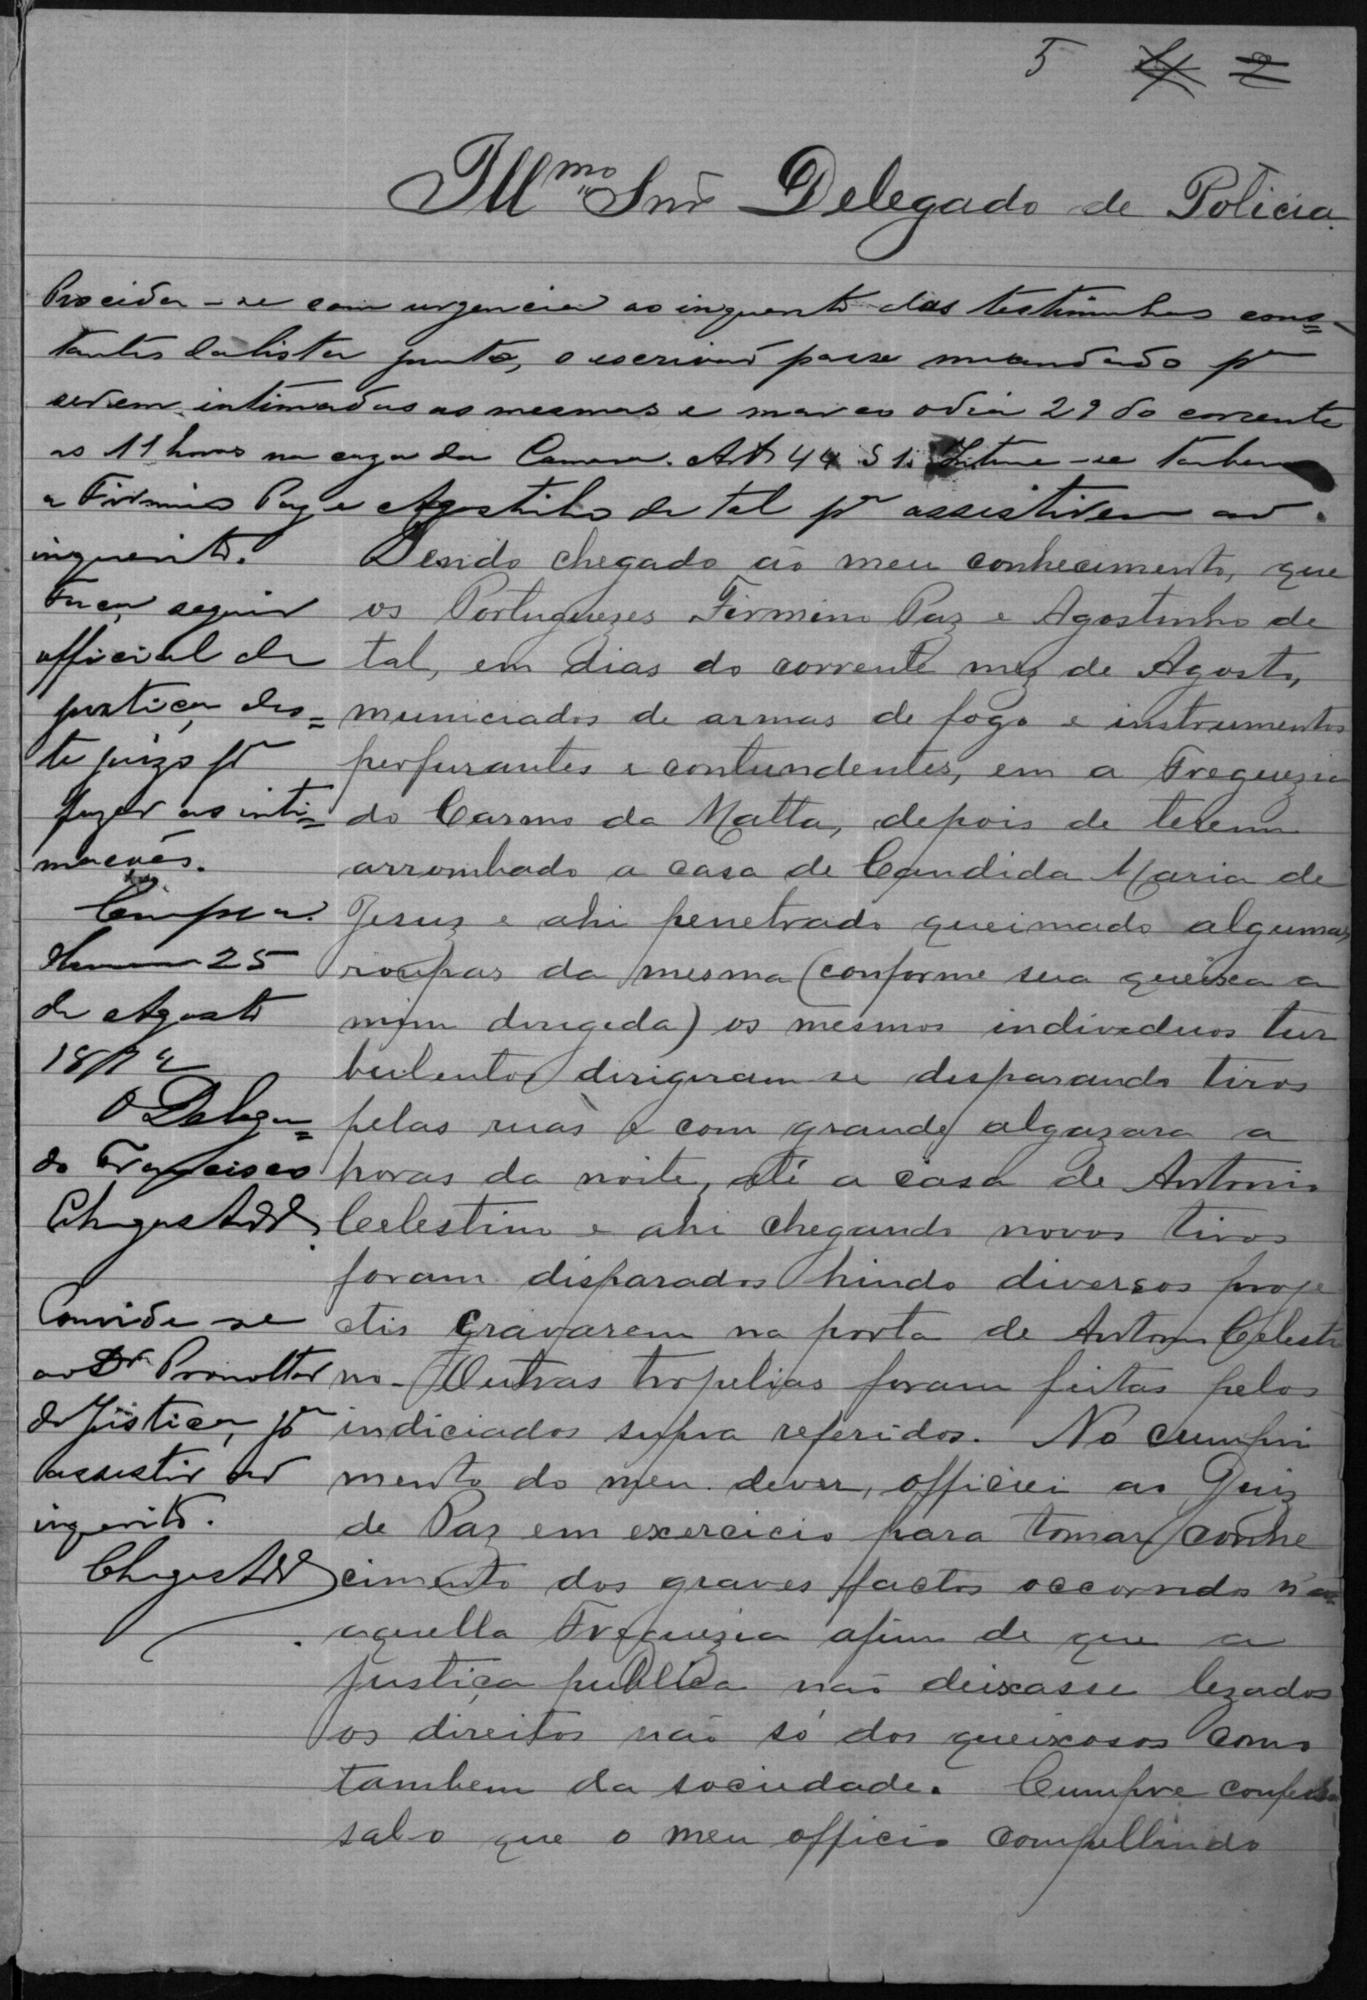 5 4 2
Illmo Snr Delegado de Policia
Proceda-se com urgencia ao inquerito das testimunhas cons=
tantes da lista junta, o escrivaõ passe mandado pa
serem intimadas as mesmas e marco o dia 29 do corrente
as 11 horas na caza da Camara. Art 44 § 1. Intime-se tambem
a Firmino Paz e Agostinho de tal pa assistirem ao
inquerito.
Faça seguir
official de
justiça des=
te juizo pa
fazer as inti=
mações.
Cumpra.
25
de Agosto
O Delega=
do Francisco
Chagas Add
Convide-se
ao Dr Promottor
de Justiça, pa
assistir ao
inquerito.
Chagas Add
Tendo chegado ao meu conhecimento, que
os Portuguezes Firmino Paz e Agostinho de
tal, em dias do corrente mez de Agosto,
municiados de armas de fogo e instrumentos
perfurantes e contundentes, em a Freguezia
do Carmo da Matta, depois de terem
arrombado a casa de Candida Maria de
Jesuz e ahi penetrado queimado algumas
roupas da mesma (conforme sua queixa a
mim dirigida) os mesmos individuos tur
bulentos dirigiram-se desparando tiros
pelas ruas e com grande algazara a
horas da noite, até a casa de Antonio
Celestino e ahi chegando novos tiros
foram disparados hindo diversos proje
ctis cravarem na porta de Antonio Celesti
no. Outras tropelias foram feitas pelos
indiciados supra referidos. No cumpri
mento do meu dever, officiei ao Juiz
de Paz em exercicio para tomar conhe
cimento dos graves factos occorridos n'a
aquella Freguezia afim de que a
justiça publica não deixasse lezados
os direitos não só dos queixosos como
tambem da sociedade. Cumpre confes
sal-o que o meu officio compellindo